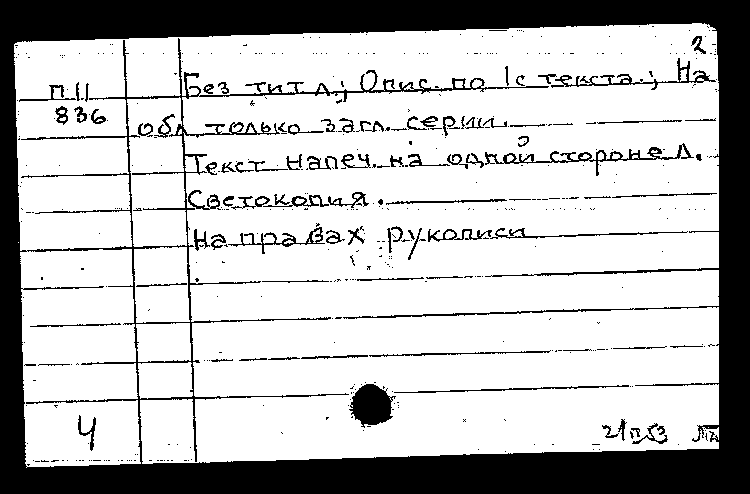 2
П II
836
Без тит л.; Опис. по 1 с текста.; На
обл только загл. серии.
Текст напеч. на одной стороне л.
Светокопия.
На правах рукописи
Ч
21/II 53